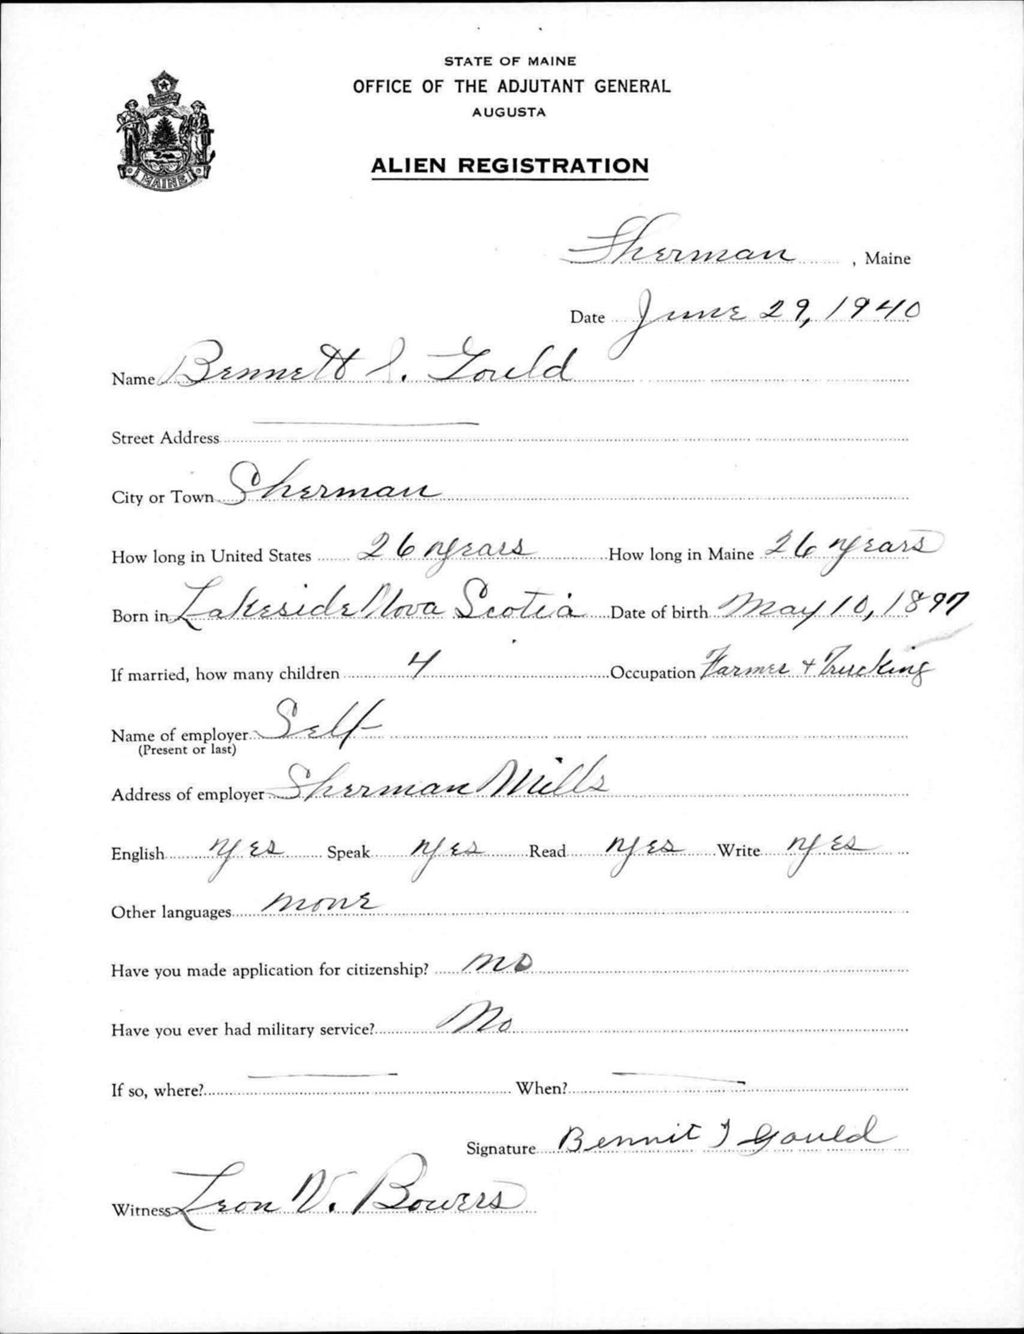 STATE OF MAINE
OFFICE OF THE ADJUTANT GENERAL
AUGUSTA
ALIEN REGISTRATION
MAINE
Sherman, Maine
Date June 29, 1940
Name Bennett I. Gould
Street Address
City or Town Sherman
How long in United States 26 years How long in Maine 26 years
Born in Lakeside Nova Scotia Date of birth May 10, 1897
If married, how many children 4 Occupation Farmer + Trucking
Name of employer Self
(Present or last)
Address of employer Sherman Mills
English Yes Speak Yes Read Yes Write Yes
Other languages none
Have you made application for citizenship? no
Have you ever had military service? No
If so, where? When?
Signature Bennit I Gould
Witness Leon V. Bowers